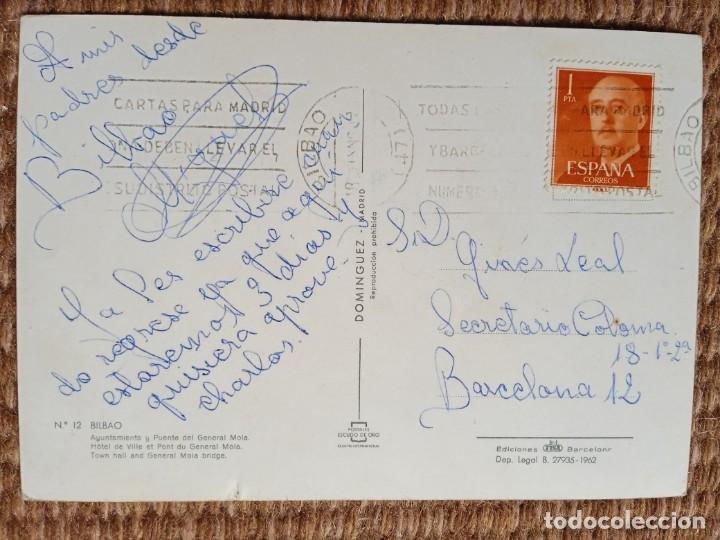 A mis
padres desde
Bilbao
Miguel
Ya les escribiré cuan
do regrese ya que aquí
estaremos 3 días y
quisiera aprove
charlos.
Nº 12 BILBAO
Ayuntamiento y Puente del General Mola.
Hôtel de Ville et Pont du General Mola.
Town hall and General Mola bridge.
CARTAS PARA MADRID
DEBEN LLEVAR EL
SU DISTRITO POSTAL
BILBAO
TODAS LAS
Y BARC
NUMERO
PARA MADRID
LLEVAR EL
POSTAL
BILBAO
1
PTA
ESPAÑA
CORREOS
DOMINGUEZ - MADRID
Reproducción prohibida
POSTALES
ESCUDO DE ORO
Leal
Secretario Coloma
18-1º-2ª
Barcelona 12
Ediciones FISA Barcelona
Dep. Legal B. 27935-1962
todocoleccion.net